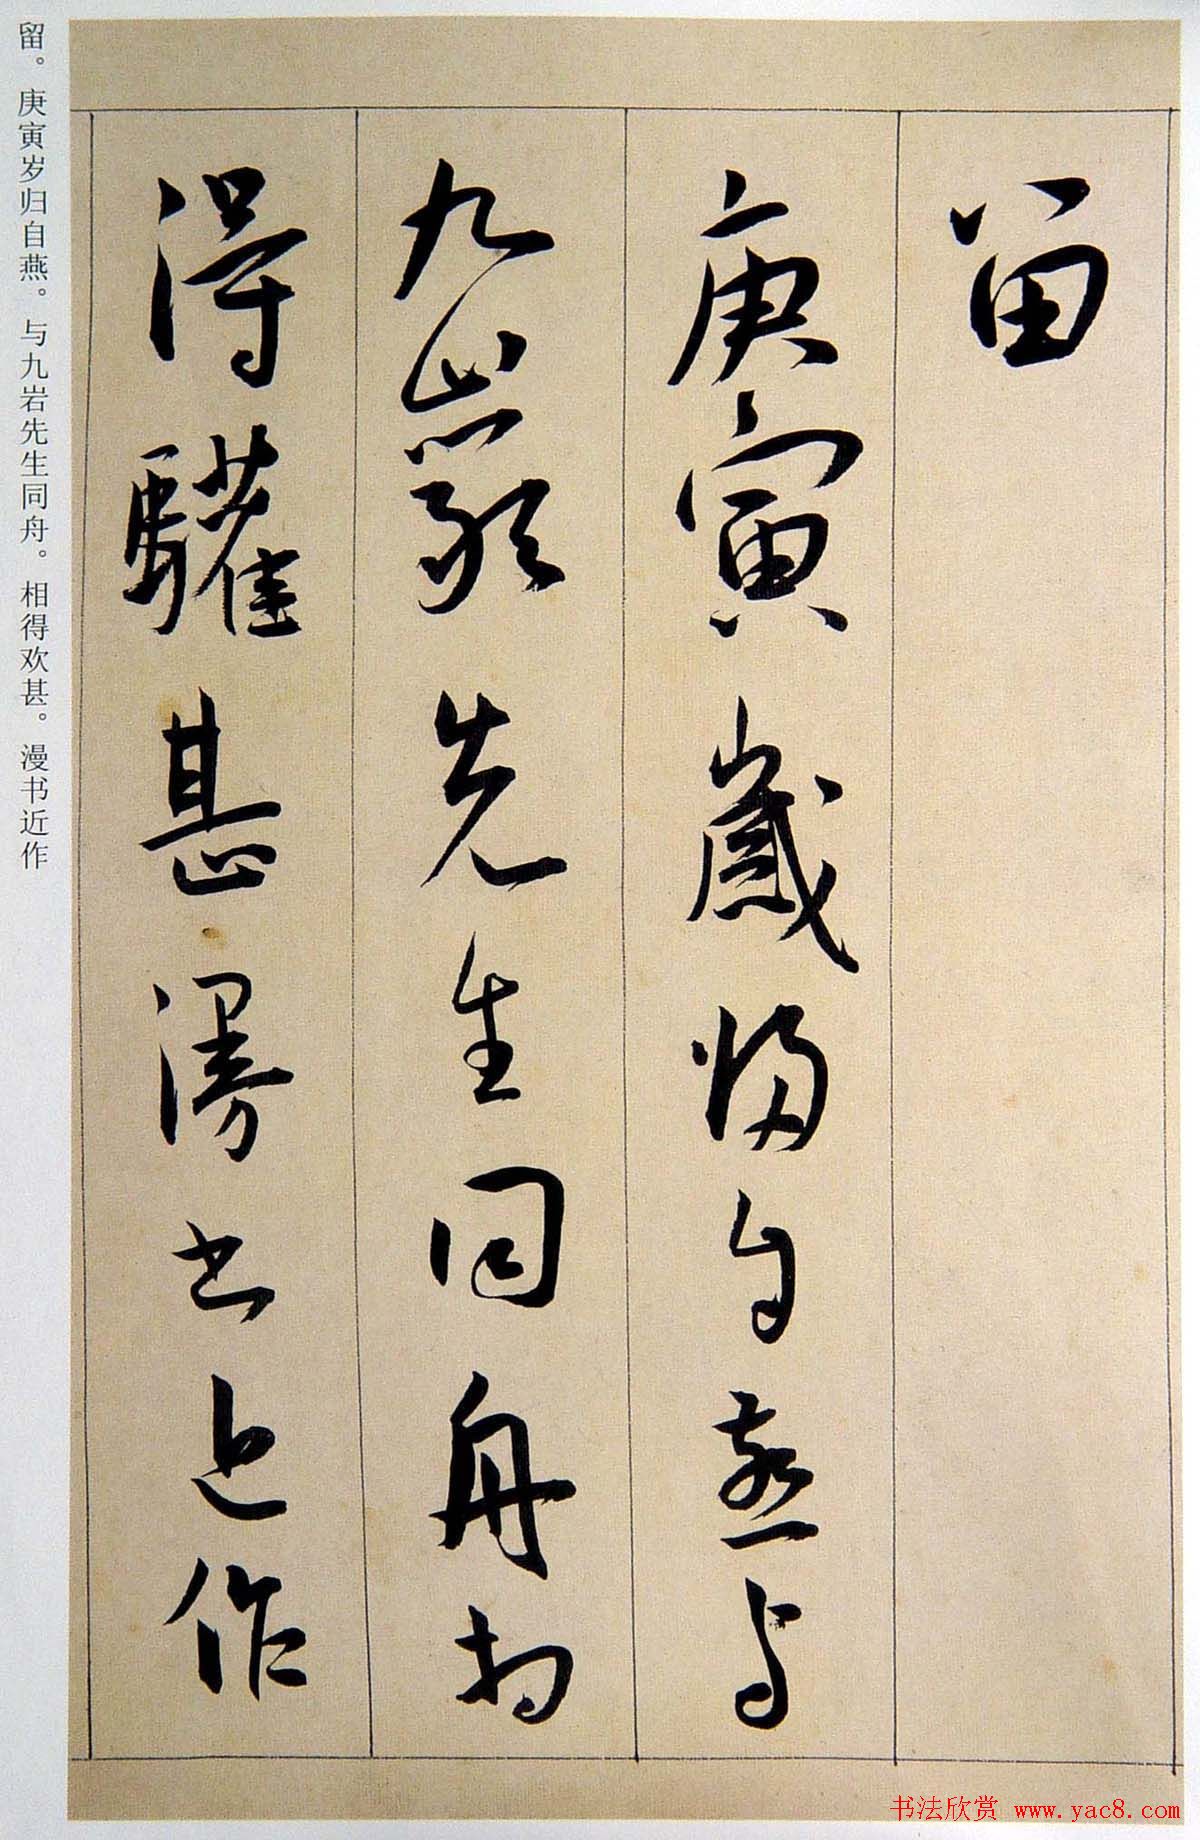 留
庚寅歲歸自燕与
九巖先生同舟相
得驩甚漫书近作
留。庚寅岁归自燕。与九岩先生同舟。相得欢甚。漫书近作
书法欣赏 www.yac8.com